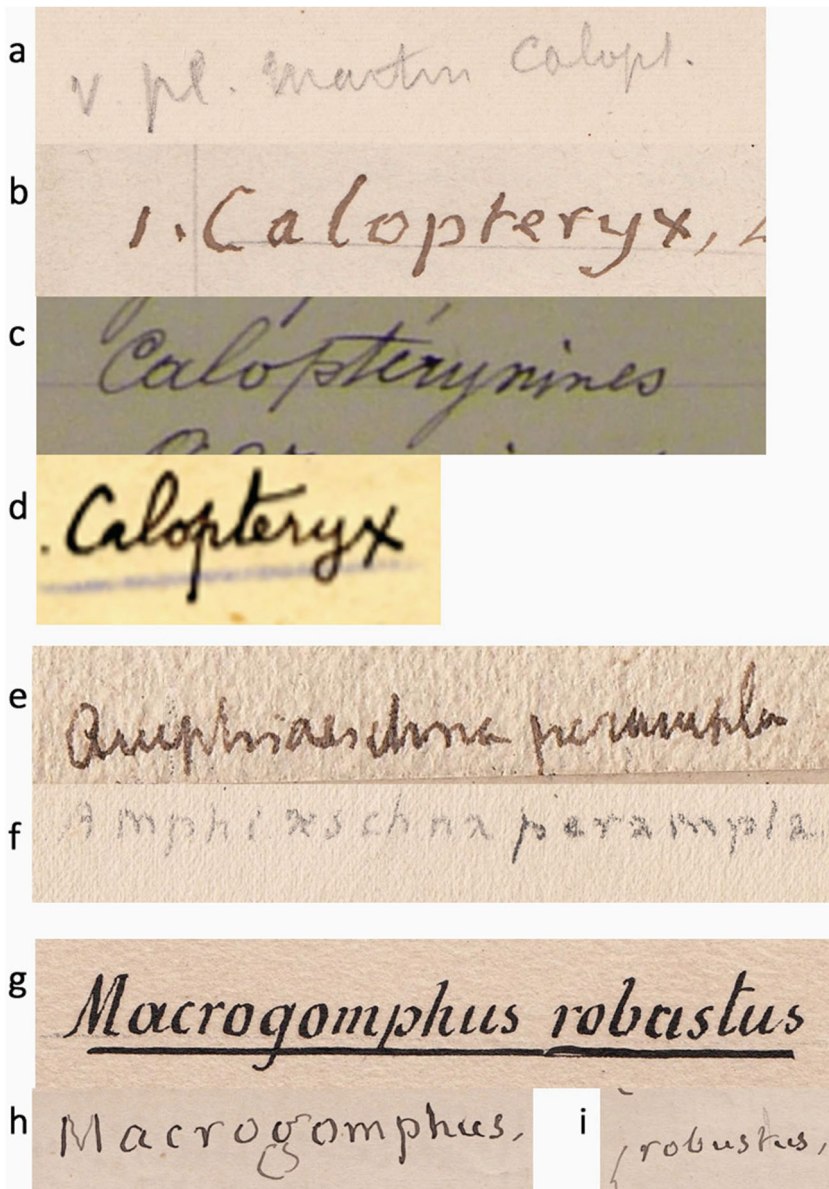 a
v. pl. Martin Calopt.
b
1. Calopteryx,
c
Caloptérynines
d
. Calopteryx
e
Amphiaeschna perampla
f
Amphiæschna perampla.
g
Macrogomphus robustus
h Macrogomphus,
i robustus,